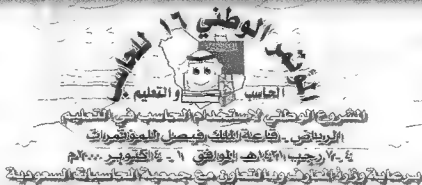 المؤتمر الوطني ١٦ للحاسب
الحاسب والتعليم
المشروع الوطني لاستخدام الحاسب في التعليم
الرياض - قاعة الملك فيصل للمؤتمرات
٤-٧ رجب ١٤٢١هـ الموافق ١-٤ أكتوبر ٢٠٠٠م
برعاية وزارة المعارف وبالتعاون مع جمعية الحاسبات السعودية